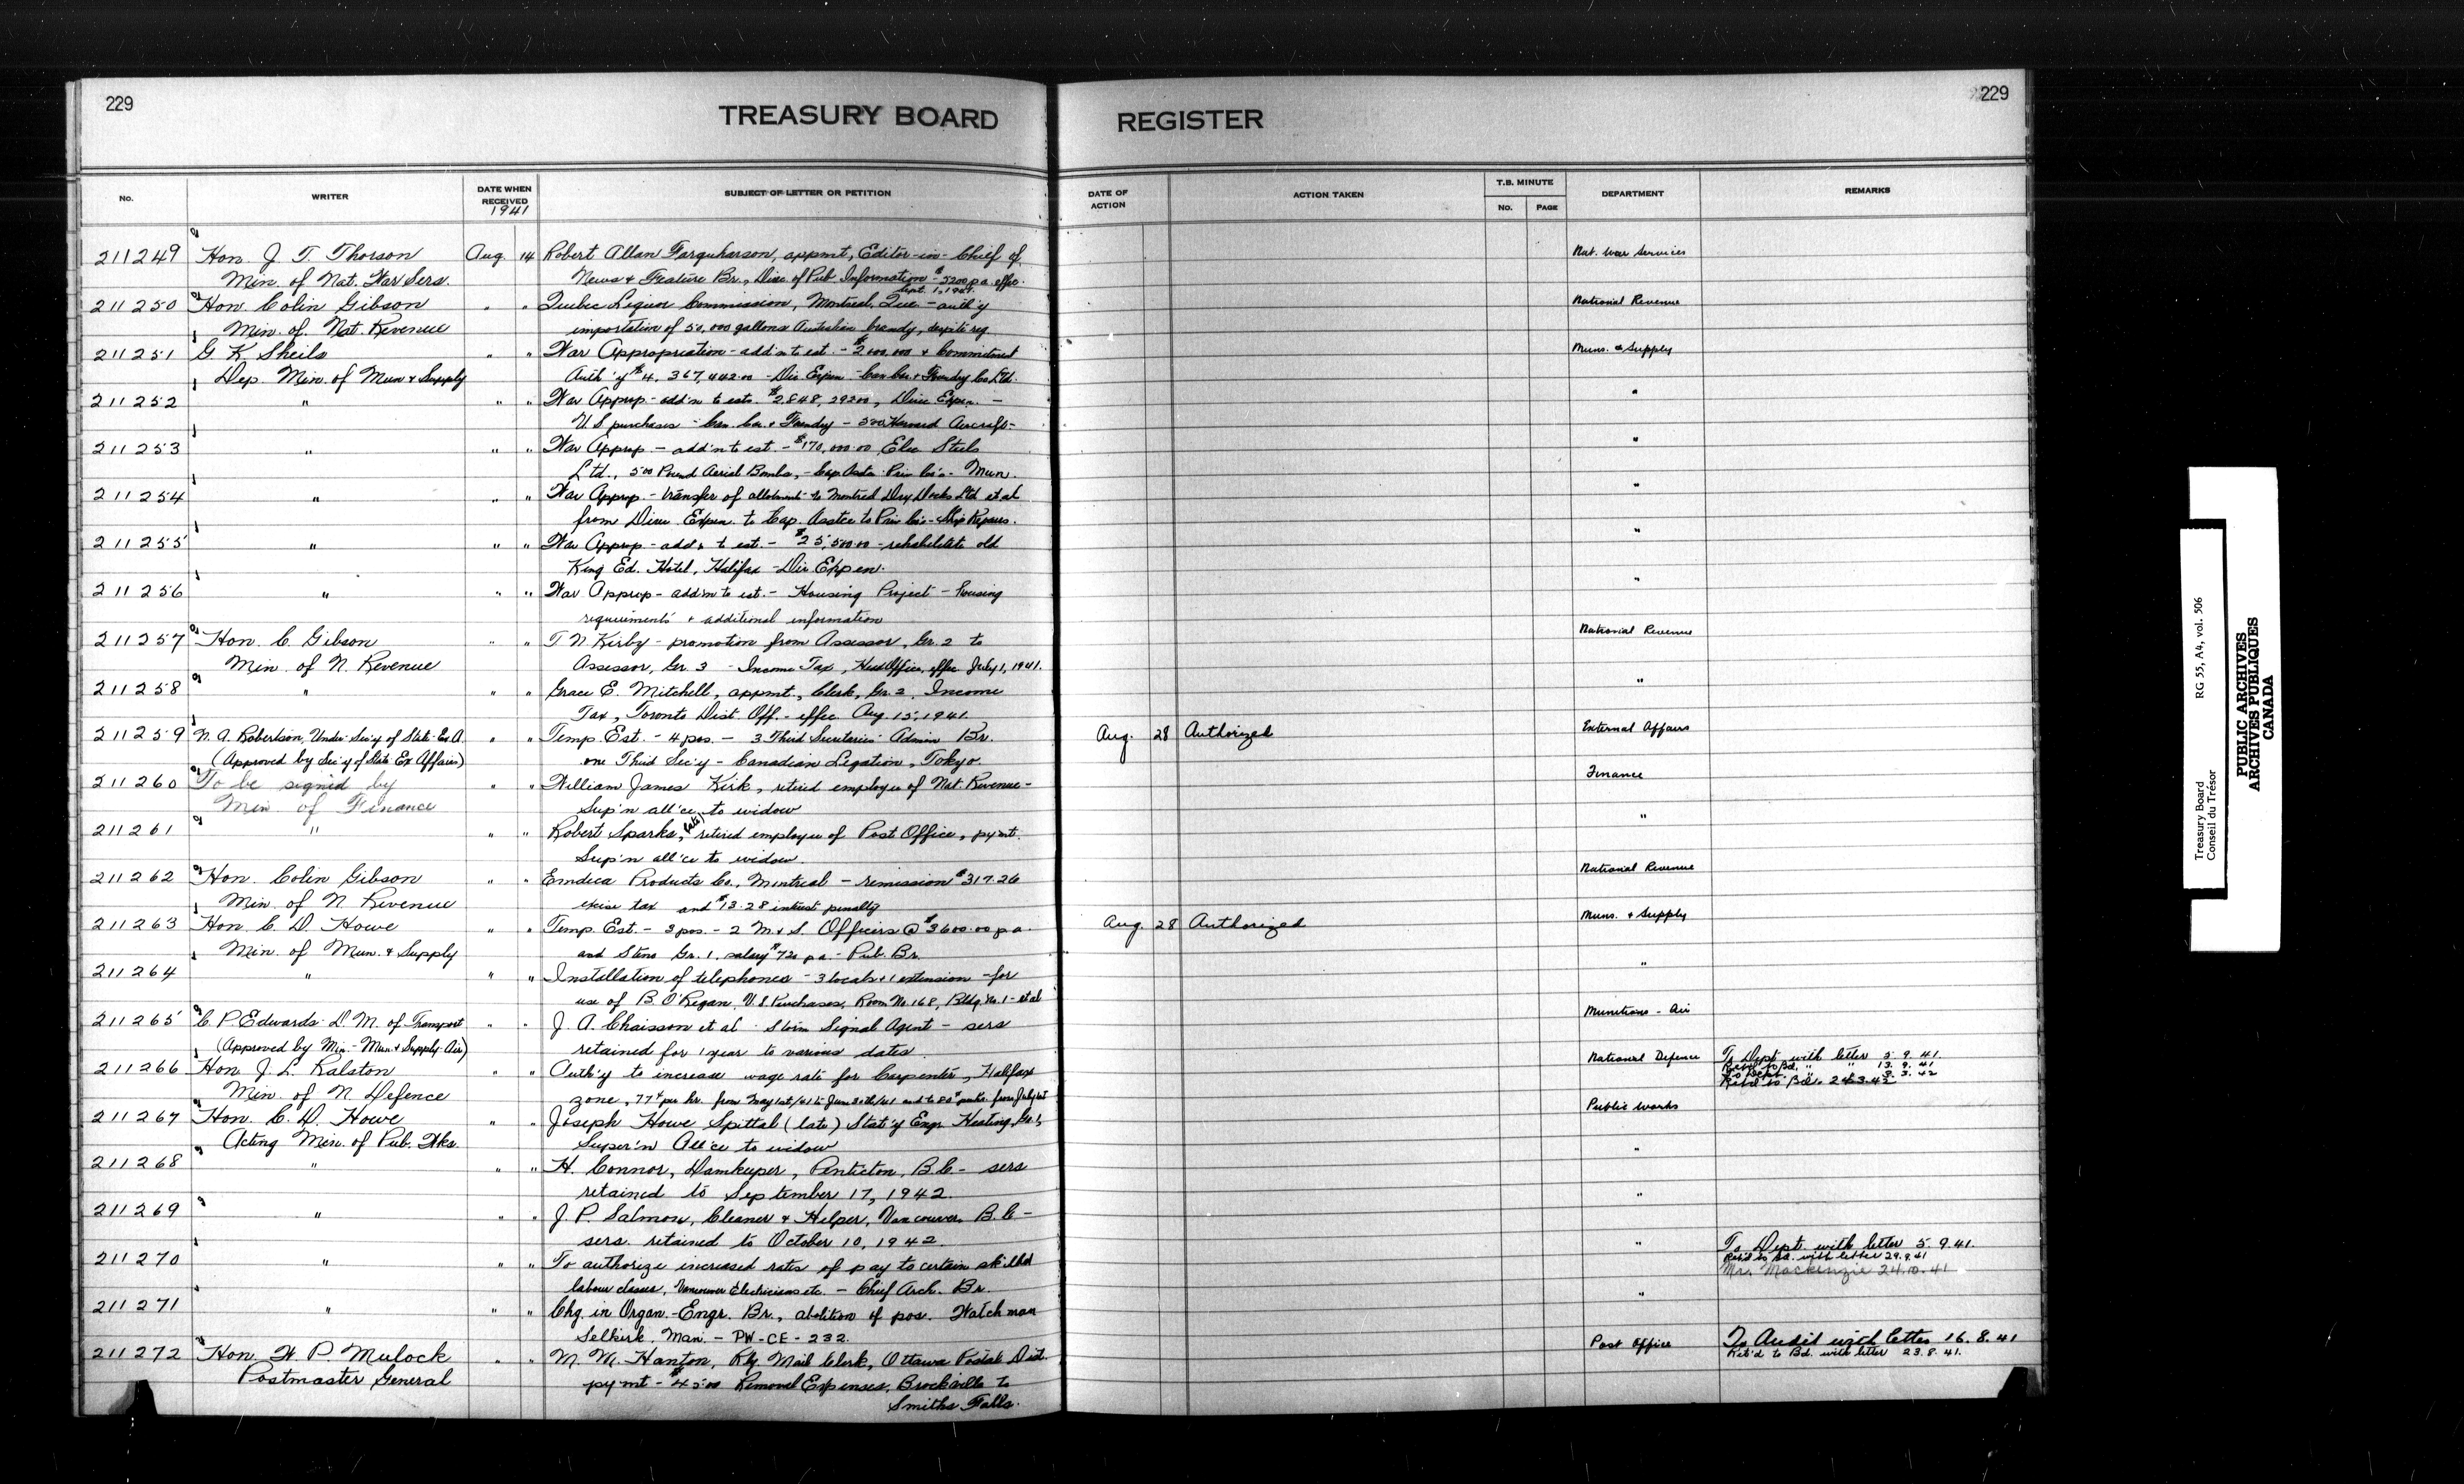 229
TREASURY BOARD REGISTER
229
No.
WRITER
DATE WHEN RECEIVED
1941
SUBJECT OF LETTER OR PETITION
DATE OF ACTION
ACTION TAKEN
T.B. MINUTE
No.
PAGE
DEPARTMENT
REMARKS
211249 Hon. J. T. Thorson Aug. 14 Robert Allan Farquharson, appmt, Editor-in-Chief of Nat. War Services
Min. of Nat. War Sers. News & Feature Br., Direc. of Pub. Information - $5200 p.a. effec.
Sept. 1, 1941.
211250 Hon. Colin Gibson " " Quebec Liquor Commission, Montreal, Que - auth'y National Revenue
Min. of Nat. Revenue importation of 50,000 gallons Australian brandy, despite reg.
211251 G. K. Sheils " " War Appropriation - add'n to est. - $2000.000 & Commitment Muns. & Supply
Dep. Min. of Mun & Supply Auth'y $4,367,442.00 - Dir. Expen - Can. Car & Foundry Co. Ltd.
211252 " " " War Approp - add'n to ests. $2,848,292.00, Direc Expen. - "
U S purchases - Can. Car & Foundry - 500 Harvard Aircraft -
211253 " " " War Approp - add'n to est. - $170,000.00 Elec Steels "
Ltd., 500 Pound Aerial Bombs, - Cap. Asstce Priv. Co's - Mun.
211254 " " " War Approp. - transfer of allotment to Montreal Dry Docks Ltd et al "
from Direc Expen. to Cap. Asstce to Priv Co's - Ship Repairs.
211255 " " " War Approp - add'n to est. - $25,500.00 - rehabilitate old "
King Ed. Hotel, Halifax - Dir. Expen.
211256 " " " War Approp - add'n to est. - Housing Project - housing "
requirements & additional information
211257 Hon. C. Gibson " " T N Kirby - promotion from Assessor, Gr. 2 to National Revenue
Min. of N. Revenue Assessor, Gr. 3 - Income Tax, Head Office, effec July 1, 1941.
211258 " " " Grace E. Mitchell, appmt., Clerk, Gr. 2, Income "
Tax, Toronto Dist. Off. - effec Aug 15, 1941.
211259 N. A. Robertson, Under-Sec'y of State Ex. A. " " Temp. Est. - 4 pos. - 3 Third Secretaries Admin Br. Aug. 28 Authorized External Affairs
(Approved by Sec'y of State Ex Affairs) one Third Sec'y - Canadian Legation, Tokyo.
211260 To be signed by " " William James Kirk, retired employee of Nat. Revenue - Finance
Min. of Finance Sup'n all'ce to widow
211261 " " " Robert Sparks, (late) retired employee of Post Office, pymt. "
Sup'n all'ce to widow.
211262 Hon. Colin Gibson " " Emdeca Products Co., Montreal - remission $317.26 National Revenue
Min. of N Revenue excise tax and $13.28 interest penalty
211263 Hon. C. D. Howe " " Temp. Est. - 3 pos. - 2 M. & S. Officers @ $3600.00 p.a. Aug. 28 Authorized Muns. & Supply
Min. of Mun. & Supply and Steno Gr. 1, salary $720 p.a. - Pub. Br.
211264 " " " Installation of telephones - 3 locals & 1 extension - for "
use of B. O'Regan, U.S Purchases, Room No. 168, Bldg. No. 1 - et al
211265 C. P. Edwards - D. M. of Transport " " J. A. Chaisson et al - Storm Signal Agent - sers Munitions - Air
(Approved by Min. - Mun. & Supply Air) retained for 1 year to various dates
211266 Hon. J. L. Ralston " " Auth'y to increase wage rate for Carpenter, Halifax National Defence To Dept. with letter 5. 9. 41.
Ret'd to Bd. " " 13. 9. 41
To Dept. " " 3. 3. 42
Ret'd to Bd. 24.3.42
Min. of N. Defence zone, 77¢ per hr. from May 1st/41 to June 30th/41 and to 80¢ per hr. from July 1st
211267 Hon. C. D. Howe " " Joseph Howe Spittal (late) Stat'y Engr. Heating, Gr. 1, Public Works
Acting Min. of Pub. Wks. Super'n All'ce to widow
211268 " " " H. Connor, Damkeeper, Penticton, B.C - sers "
retained to September 17, 1942.
211269 " " " J. P. Salmon, Cleaner & Helper, Vancouver, B.C - "
sers. retained to October 10, 1942.
211270 " " " To authorize increased rates of pay to certain skilled " To Dept with letter 5. 9.41.
Ret'd to Bd. with letter 29.9.41
Mr. Mackenzie 24.10.41
labour classes, Vancouver Electricians etc. - Chief Arch. Br.
211271 " " " Chg. in Organ. - Engr. Br., abolition of pos. Watchman "
Selkirk, Man. - PW-CE-232.
211272 Hon. W. P. Mulock " " M. W. Hanton, Rly. Mail Clerk, Ottawa Postal Dist. Post Office To Audit with letter 16. 8. 41
Ret'd to Bd. with letter 23. 8. 41.
Postmaster General pymt - $45.00 Removal Expenses, Brockville to
Smiths Falls.
Treasury Board
Conseil du Trésor
RG 55, A4, vol. 506
PUBLIC ARCHIVES
ARCHIVES PUBLIQUES
CANADA